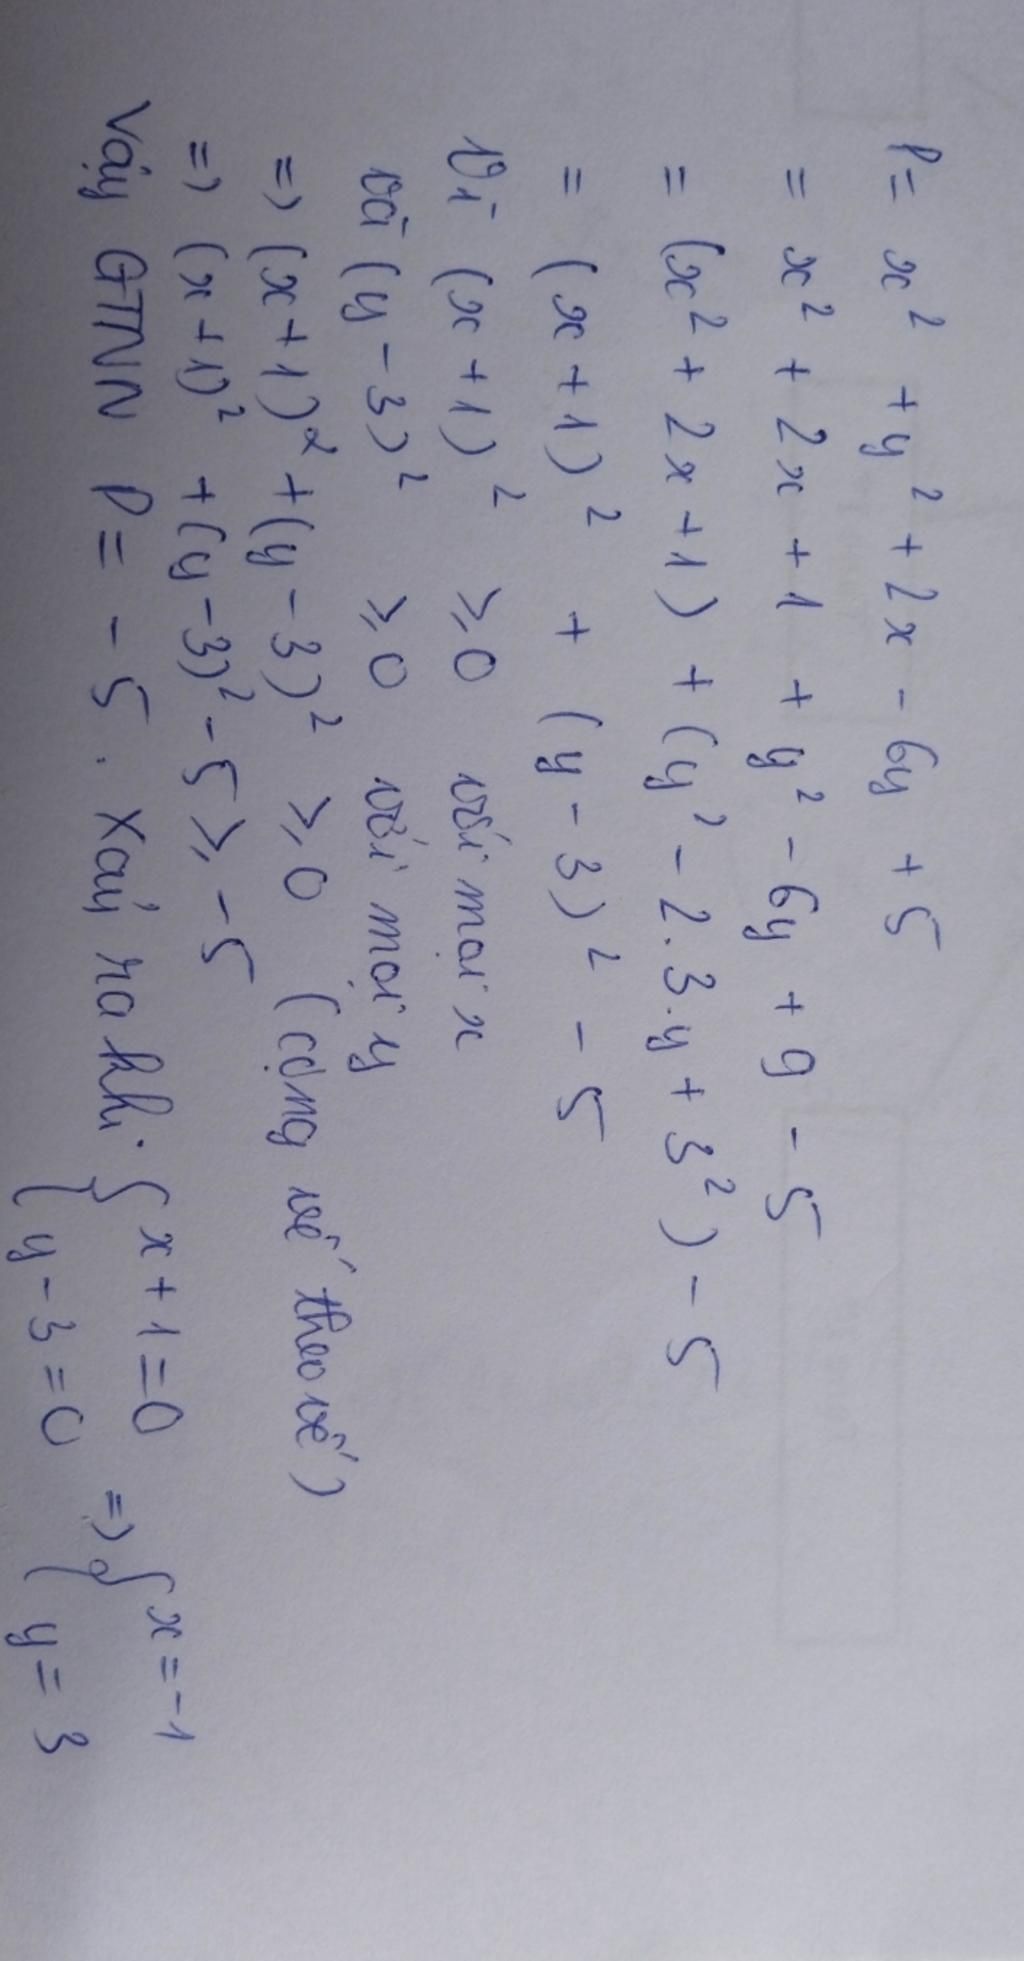 P = x² + y² + 2x - 6y + 5
= x² + 2x + 1 + y² - 6y + 9 - 5
= (x² + 2x + 1) + (y² - 2.3.y + 3²) - 5
= (x + 1)² + (y - 3)² - 5
Vì (x + 1)² ⩾ 0 với mọi x
và (y - 3)² ⩾ 0 với mọi y
=> (x + 1)² + (y - 3)² ⩾ 0 (cộng vế theo vế)
=> (x + 1)² + (y - 3)² - 5 ⩾ - 5
Vậy GTNN P = - 5. Xảy ra khi { x + 1 = 0 => { x = -1
y - 3 = 0 y = 3